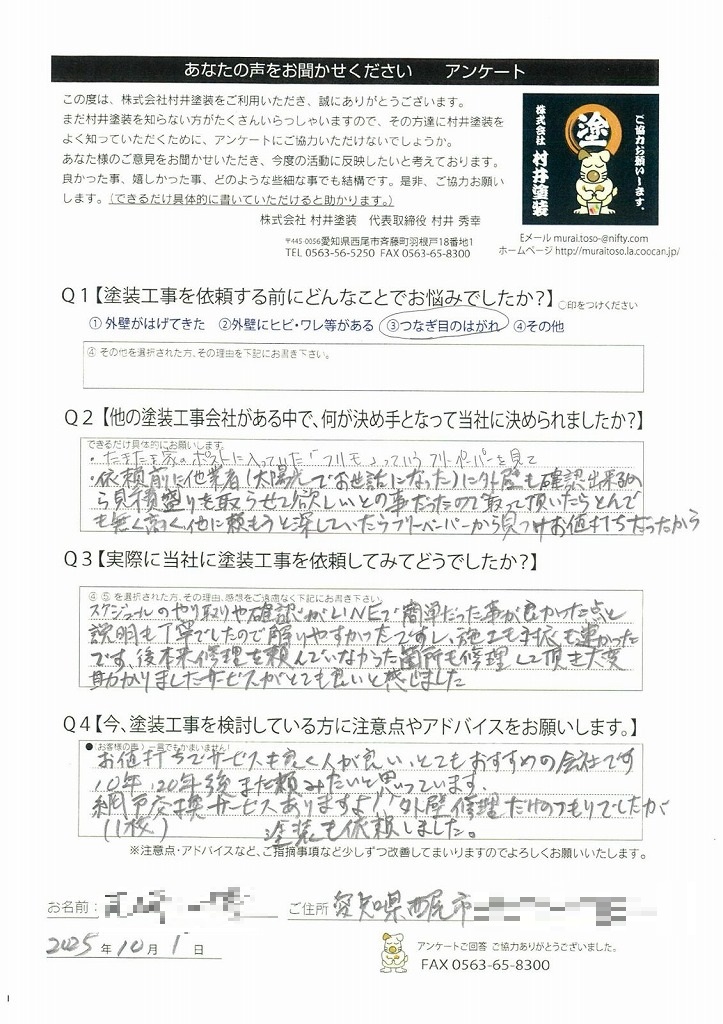 あなたの声をお聞かせください アンケート
この度は、株式会社村井塗装をご利用いただき、誠にありがとうございます。
まだ村井塗装を知らない方がたくさんいらっしゃいますので、その方達に村井塗装を
よく知っていただくために、アンケートにご協力いただけないでしょうか。
あなた様のご意見をお聞かせいただき、今度の活動に反映したいと考えております。
良かった事、嬉しかった事、どのような些細な事でも結構です。是非、ご協力お願い
します。(できるだけ具体的に書いていただけると助かります。)
株式会社 村井塗装 代表取締役 村井 秀幸
〒445-0056愛知県西尾市斉藤町羽根戸18番地1
TEL 0563-56-5250 FAX 0563-65-8300
ご協力お願いします。
塗
株式会社 村井塗装
Eメール murai.toso-@nifty.com
ホームページ http://muraitoso.la.coocan.jp/
Q1【塗装工事を依頼する前にどんなことでお悩みでしたか?】○印をつけください
①外壁がはげてきた ②外壁にヒビ・ワレ等がある ③つなぎ目のはがれ ④その他
④ その他を選択された方、その理由を下記にお書き下さい。
Q2【他の塗装工事会社がある中で、何が決め手となって当社に決められましたか?】
できるだけ具体的にお願いします。
・たまたま家のポストに入っていた「フリモ」っていうフリーペーパーを見て
・依頼前に他業者(太陽光でお世話になった)に外壁も確認出来るか
ら見積盛りを取らせて欲しいとの事だったので取って頂いたらとんで
も無く高く、他に頼もうと探していたらフリーペーパーから見つけお値打ちだったから
Q3【実際に当社に塗装工事を依頼してみてどうでしたか?】
④ ⑤ を選択された方、その理由、感想をご遠慮なく下記にお書き下さい。
スケジュールのやり取りや確認がLINEで簡単だった事が良かった点と
説明も丁寧でしたので解りやすかったですし、施工も対応も早かった
です。後本来修理を頼んでいなかった箇所も修理して頂き大変
助かりましたサービスがとても良いと感じました
Q4【今、塗装工事を検討している方に注意点やアドバイスをお願いします。】
●(お客様の声)一言でもかまいません!
お値打ちでサービスも良く人が良い、とてもおすすめの会社です
10年、20年後また頼みたいと思っています。
網戸交換サービスありますよ!外壁修理だけのつもりでしたが
(11枚) 塗装も依頼しました。
※注意点・アドバイスなど、ご指摘事項など少しずつ改善してまいりますのでよろしくお願いいたします。
お名前: ご住所 愛知県西尾市
2025年10月1日
アンケートご回答 ご協力ありがとうございました。
FAX 0563-65-8300